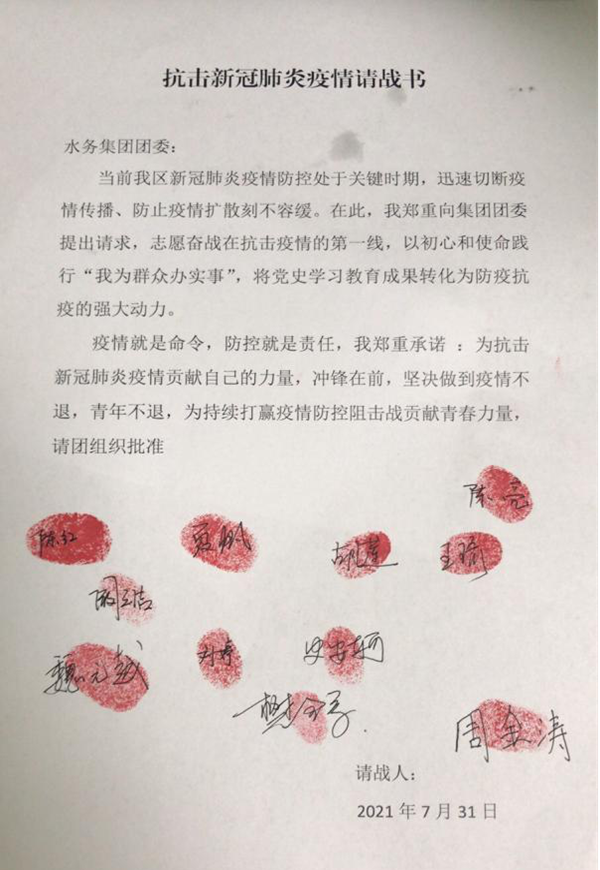 抗击新冠肺炎疫情请战书
水务集团团委：
当前我区新冠肺炎疫情防控处于关键时期，迅速切断疫
情传播、防止疫情扩散刻不容缓。在此，我郑重向集团团委
提出请求，志愿奋战在抗击疫情的第一线，以初心和使命践
行“我为群众办实事”，将党史学习教育成果转化为防疫抗
疫的强大动力。
疫情就是命令，防控就是责任，我郑重承诺 ：为抗击
新冠肺炎疫情贡献自己的力量，冲锋在前，坚决做到疫情不
退，青年不退，为持续打赢疫情防控阻击战贡献青春力量，
请团组织批准
陈亮
陈红 夏 王
魏元越
周金涛
请战人：
2021 年 7 月 31 日